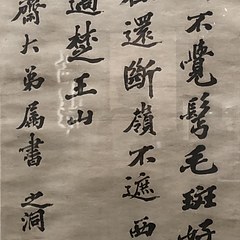 不覺鬢毛斑好
還斷嶺不遮西
過楚王山
齋大弟屬書 之洞